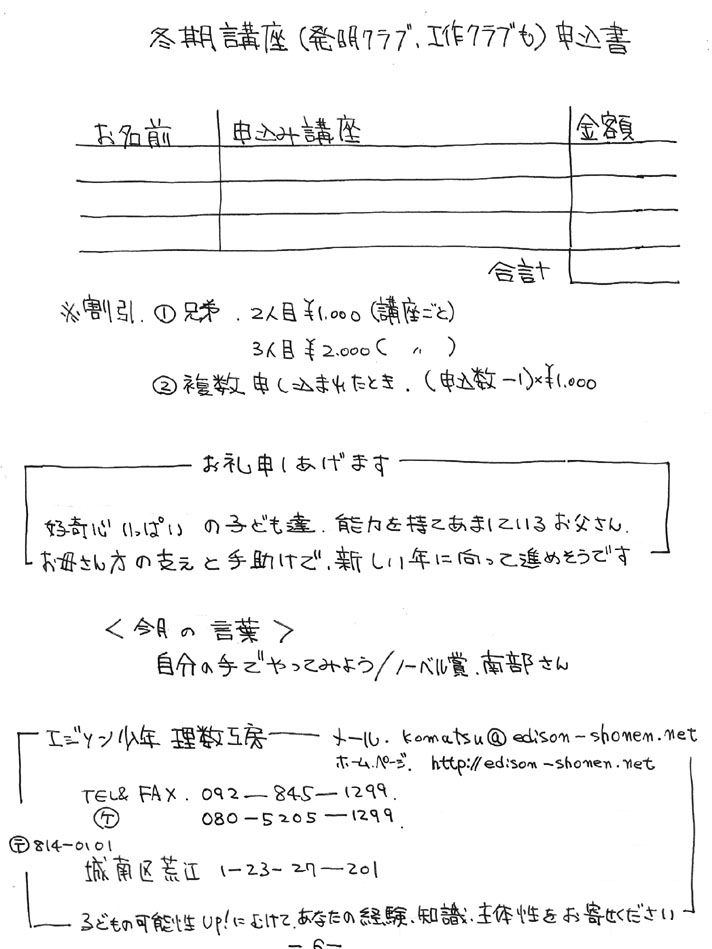 冬期講座(発明クラブ、工作クラブも)申込書
お名前 申込み講座 金額
合計
※割引. ① 兄弟 . 2人目 ¥1.000 (講座ごと)
3人目 ¥2.000 ( 〃 )
② 複数申し込まれたとき. (申込数-1)×¥1.000
お礼申しあげます
好奇心いっぱいの子ども達、能力を持てあましているお父さん、
お母さん方の支えと手助けで、新しい年に向って進めそうです
<今月の言葉>
自分の手でやってみよう/ノーベル賞.南部さん
エジソン少年 理数工房 メール. komatsu@edison-shonen.net
ホームページ. http://edison-shonen.net
TEL& FAX. 092-845-1299.
ケ 080-5205-1299.
〒814-0101
城南区荒江 1-23-27-201
子どもの可能性up!にむけて、あなたの経験、知識、主体性をお寄せください
-6-